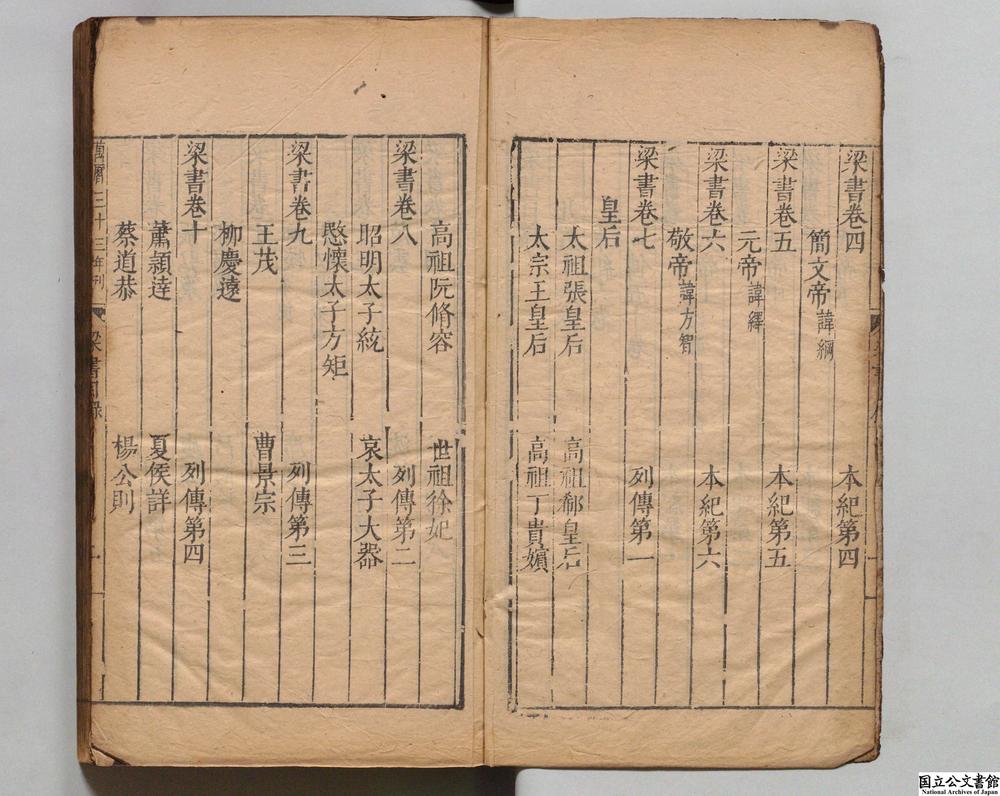 梁書卷四 本紀第四
簡文帝諱綱
梁書卷五 本紀第五
元帝諱繹
梁書卷六 本紀第六
敬帝諱方智
梁書卷七 列傳第一
皇后
太祖張皇后 高祖郗皇后
太宗王皇后 高祖丁貴嬪
高祖阮脩容 世祖徐妃
梁書卷八 列傳第二
昭明太子統 哀太子大器
愍懷太子方矩
梁書卷九 列傳第三
王茂 曹景宗
柳慶遠
梁書卷十 列傳第四
蕭頴達 夏侯詳
蔡道恭 楊公則
萬曆三十三年刊 梁書目錄
国立公文書館
National Archives of Japan